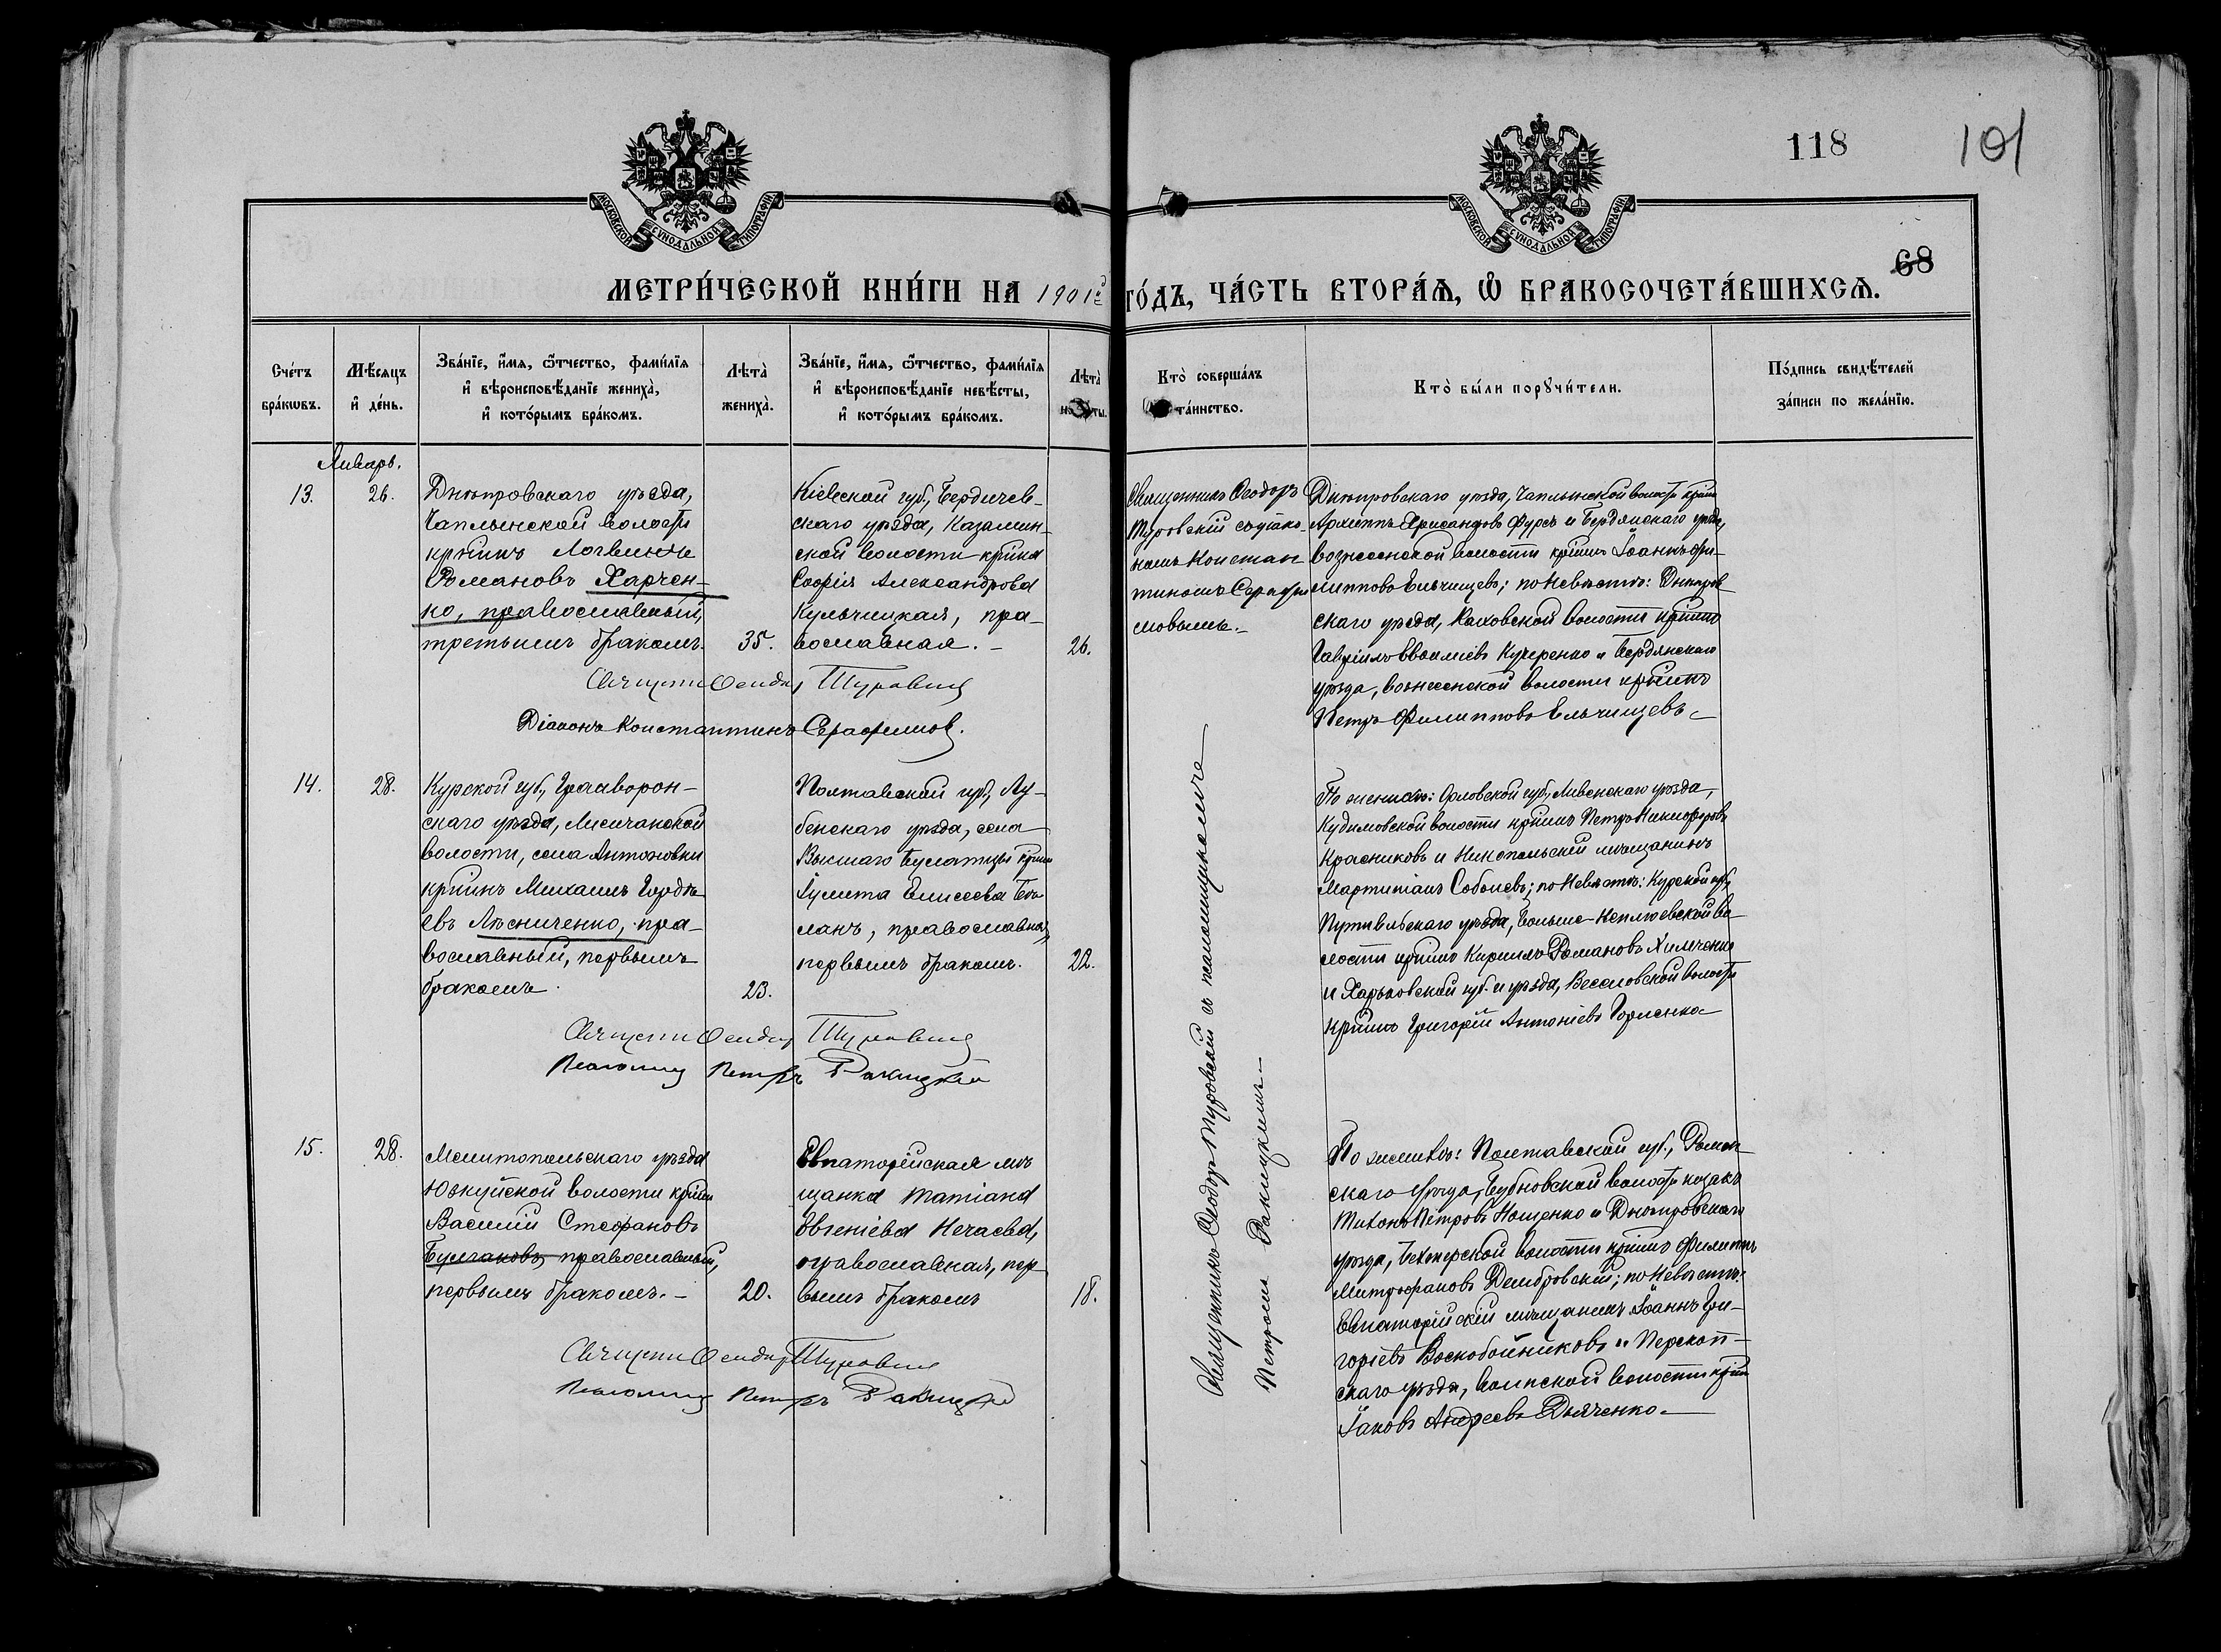 118
101
68
МОСКОВСКОЙ СѴНОДАЛЬНОЙ ТИПОГРАФІИ
МОСКОВСКОЙ СѴНОДАЛЬНОЙ ТИПОГРАФІИ
МЕТРИ́ЧЕСКОЙ КНИ́ГИ НА 1901й ГО́ДЪ, ЧА́СТЬ ВТОРА́Ѧ, Ѽ БРАКОСОЧЕТА́ВШИХСѦ.
Сче́тъ бра́кѡвъ.
Мѣ́сяцъ и҆ де́нь.
Зва́нїе, и҆́мѧ, ѻ҆́тчество, фами́лїѧ
и҆ вѣроисповѣ́данїе жениха̀,
и҆ кото́рымъ бра́комъ.
Лѣта̀ жениха̀.
Зва́нїе, и҆́мѧ, ѻ҆́тчество, фами́лїѧ
и҆ вѣроисповѣ́данїе невѣ́сты,
и҆ кото́рымъ бра́комъ.
Лѣта̀
Кто̀ соверша́лъ
та́инство.
Кто̀ бы́ли порꙋчи́тели.
По́дпись свидѣ́телей
за́писи по жела́нїю.
Январь.
13.
26.
Днѣпровскаго уѣзда,
Чаплынской волости
крѣинъ Логвинъ
Романовъ Харчен-
ко, православный,
третьимъ бракомъ.
35.
Кіевской губ., Бердичев-
скаго уѣзда, Казатин-
ской волости крѣнка
Софія Александрова
Кульчицкая, пра-
вославная.-
26.
Священникъ Ѳеодоръ
Туровскій съ діако-
номъ Констан
тиномъ Серафи
мовымъ.-
Днѣпровскаго уѣзда, Чаплынской волости крѣинъ
Архиппъ Хрисанфовъ Фурсъ и Бердянскаго уѣзда,
Вознесенской волости крѣинъ Іоаннъ Фи-
липповъ Ельчищевъ; по Невѣстѣ: Днѣпров
скаго уѣзда, Каховской волости крѣинъ
Гавріилъ Кучеренко и Бердянскаго
уѣзда, Вознесенской волости крѣинъ
Петръ Филипповъ Ельчищевъ-
Священ Ѳеодор Туровскій
Діаконъ Константинъ Серафимов.
14.
28.
Курской губ., Грайворон-
скаго уѣзда, Лисичанской
волости, села Антоновки
крѣинъ Михаилъ Гордѣ
евъ Лѣсниченко, пра-
вославный, первымъ
бракомъ.
23.
Полтавской губ., Лу-
бенскаго уѣзда, села
Вышшаго Булатца крѣин
Іулита Елисеева Бо
ланъ, православная,
первымъ бракомъ.
22.
По женихѣ: Орловской губ., Ливенскаго уѣзда,
Кудиновской волости крѣинъ Петръ Никифоровъ
Красниковъ и Никопольскій мѣщанинъ
Мартиніанъ Соболевъ; по Невѣстѣ: Курской губ.,
Путивльскаго уѣзда, Больше-Неплюевской во
лости крѣинъ Кириллъ Романовъ Хильченко
и Харьковской губ. и уѣзда, Веселовской волости
крѣинъ Григорій Антоніевъ Горленко-
Священ Ѳеодор Туровскій
Псаломщ Петръ Ракицкій
Священникъ Ѳеодоръ Туровскій съ псаломщикомъ
Петромъ Ракицкимъ.-
15.
28.
Мелитопольскаго уѣзда
Юзкуйской волости крѣин
Василій Стефановъ
Булгаковъ, православный,
первымъ бракомъ.-
20.
Евпаторійская мѣ
щанка Татіана
Евгеніева Нечаева,
православная, пер
вымъ бракомъ
18.
По женихѣ: Полтавской губ., Ромен-
скаго уѣзда, Бубновской волости козакъ
Титонъ Петровъ Нощенко и Днѣпровскаго
уѣзда, Бехтерской волости крѣинъ Филиппъ
Митрофановъ Домбровскій; по Невѣстѣ:
Евпаторійскій мѣщанинъ Іоаннъ Гри-
горіевъ Воскобойниковъ и Перекоп-
скаго уѣзда, волости крѣин
Іаковъ Андреевъ Дьяченко-
Священ Ѳеодор Туровскій
Псаломщ Петръ Ракицкій